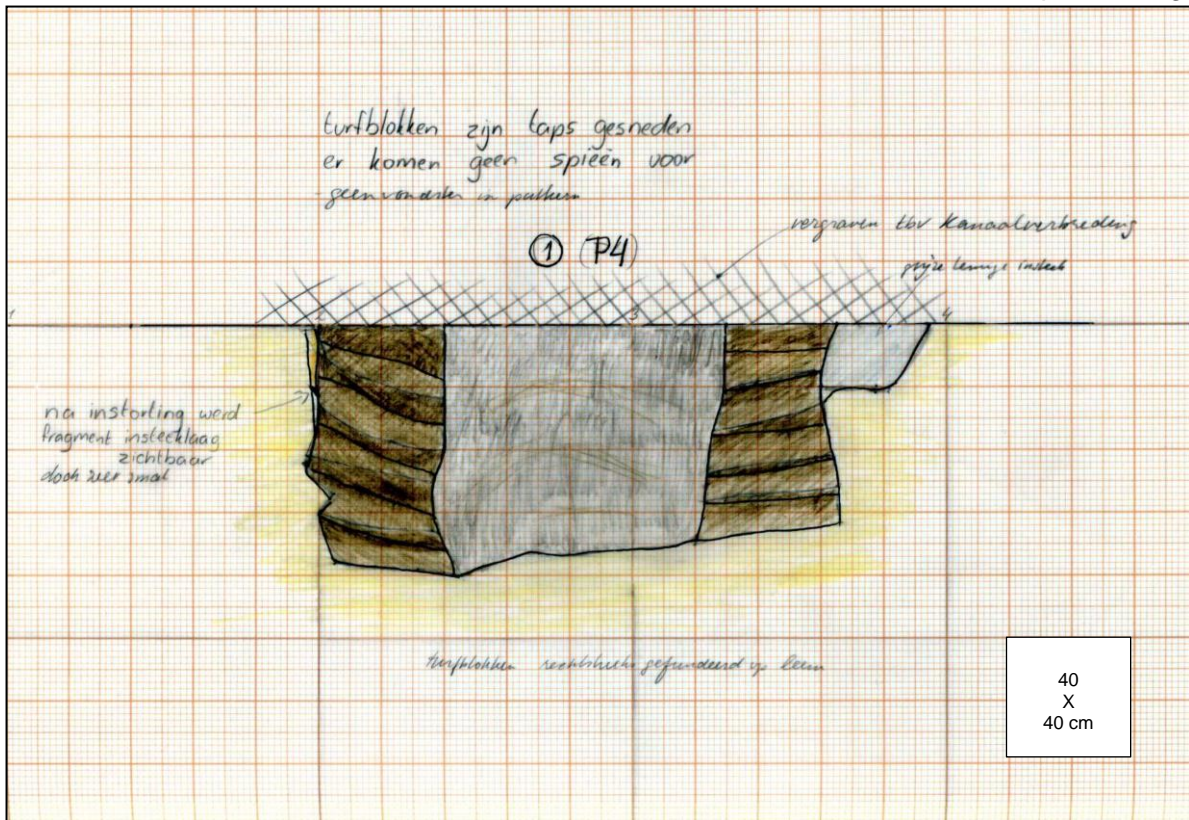 turfblokken zijn taps gesneden
er komen geen spieën voor
geen vondsten in
① (P4)
vergraven tbv Kanaalverbreding
grijze lemige insteek
1 2 3 4
na instorting werd
fragment insteeklaag
zichtbaar
doch zeer smal
turfblokken rechtstreeks gefundeerd op leem
40
X
40 cm